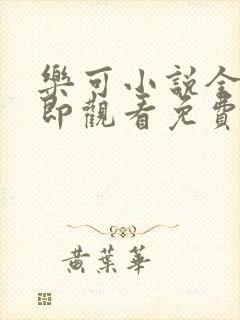 樂可小說全
即觀看免費
黃葉華